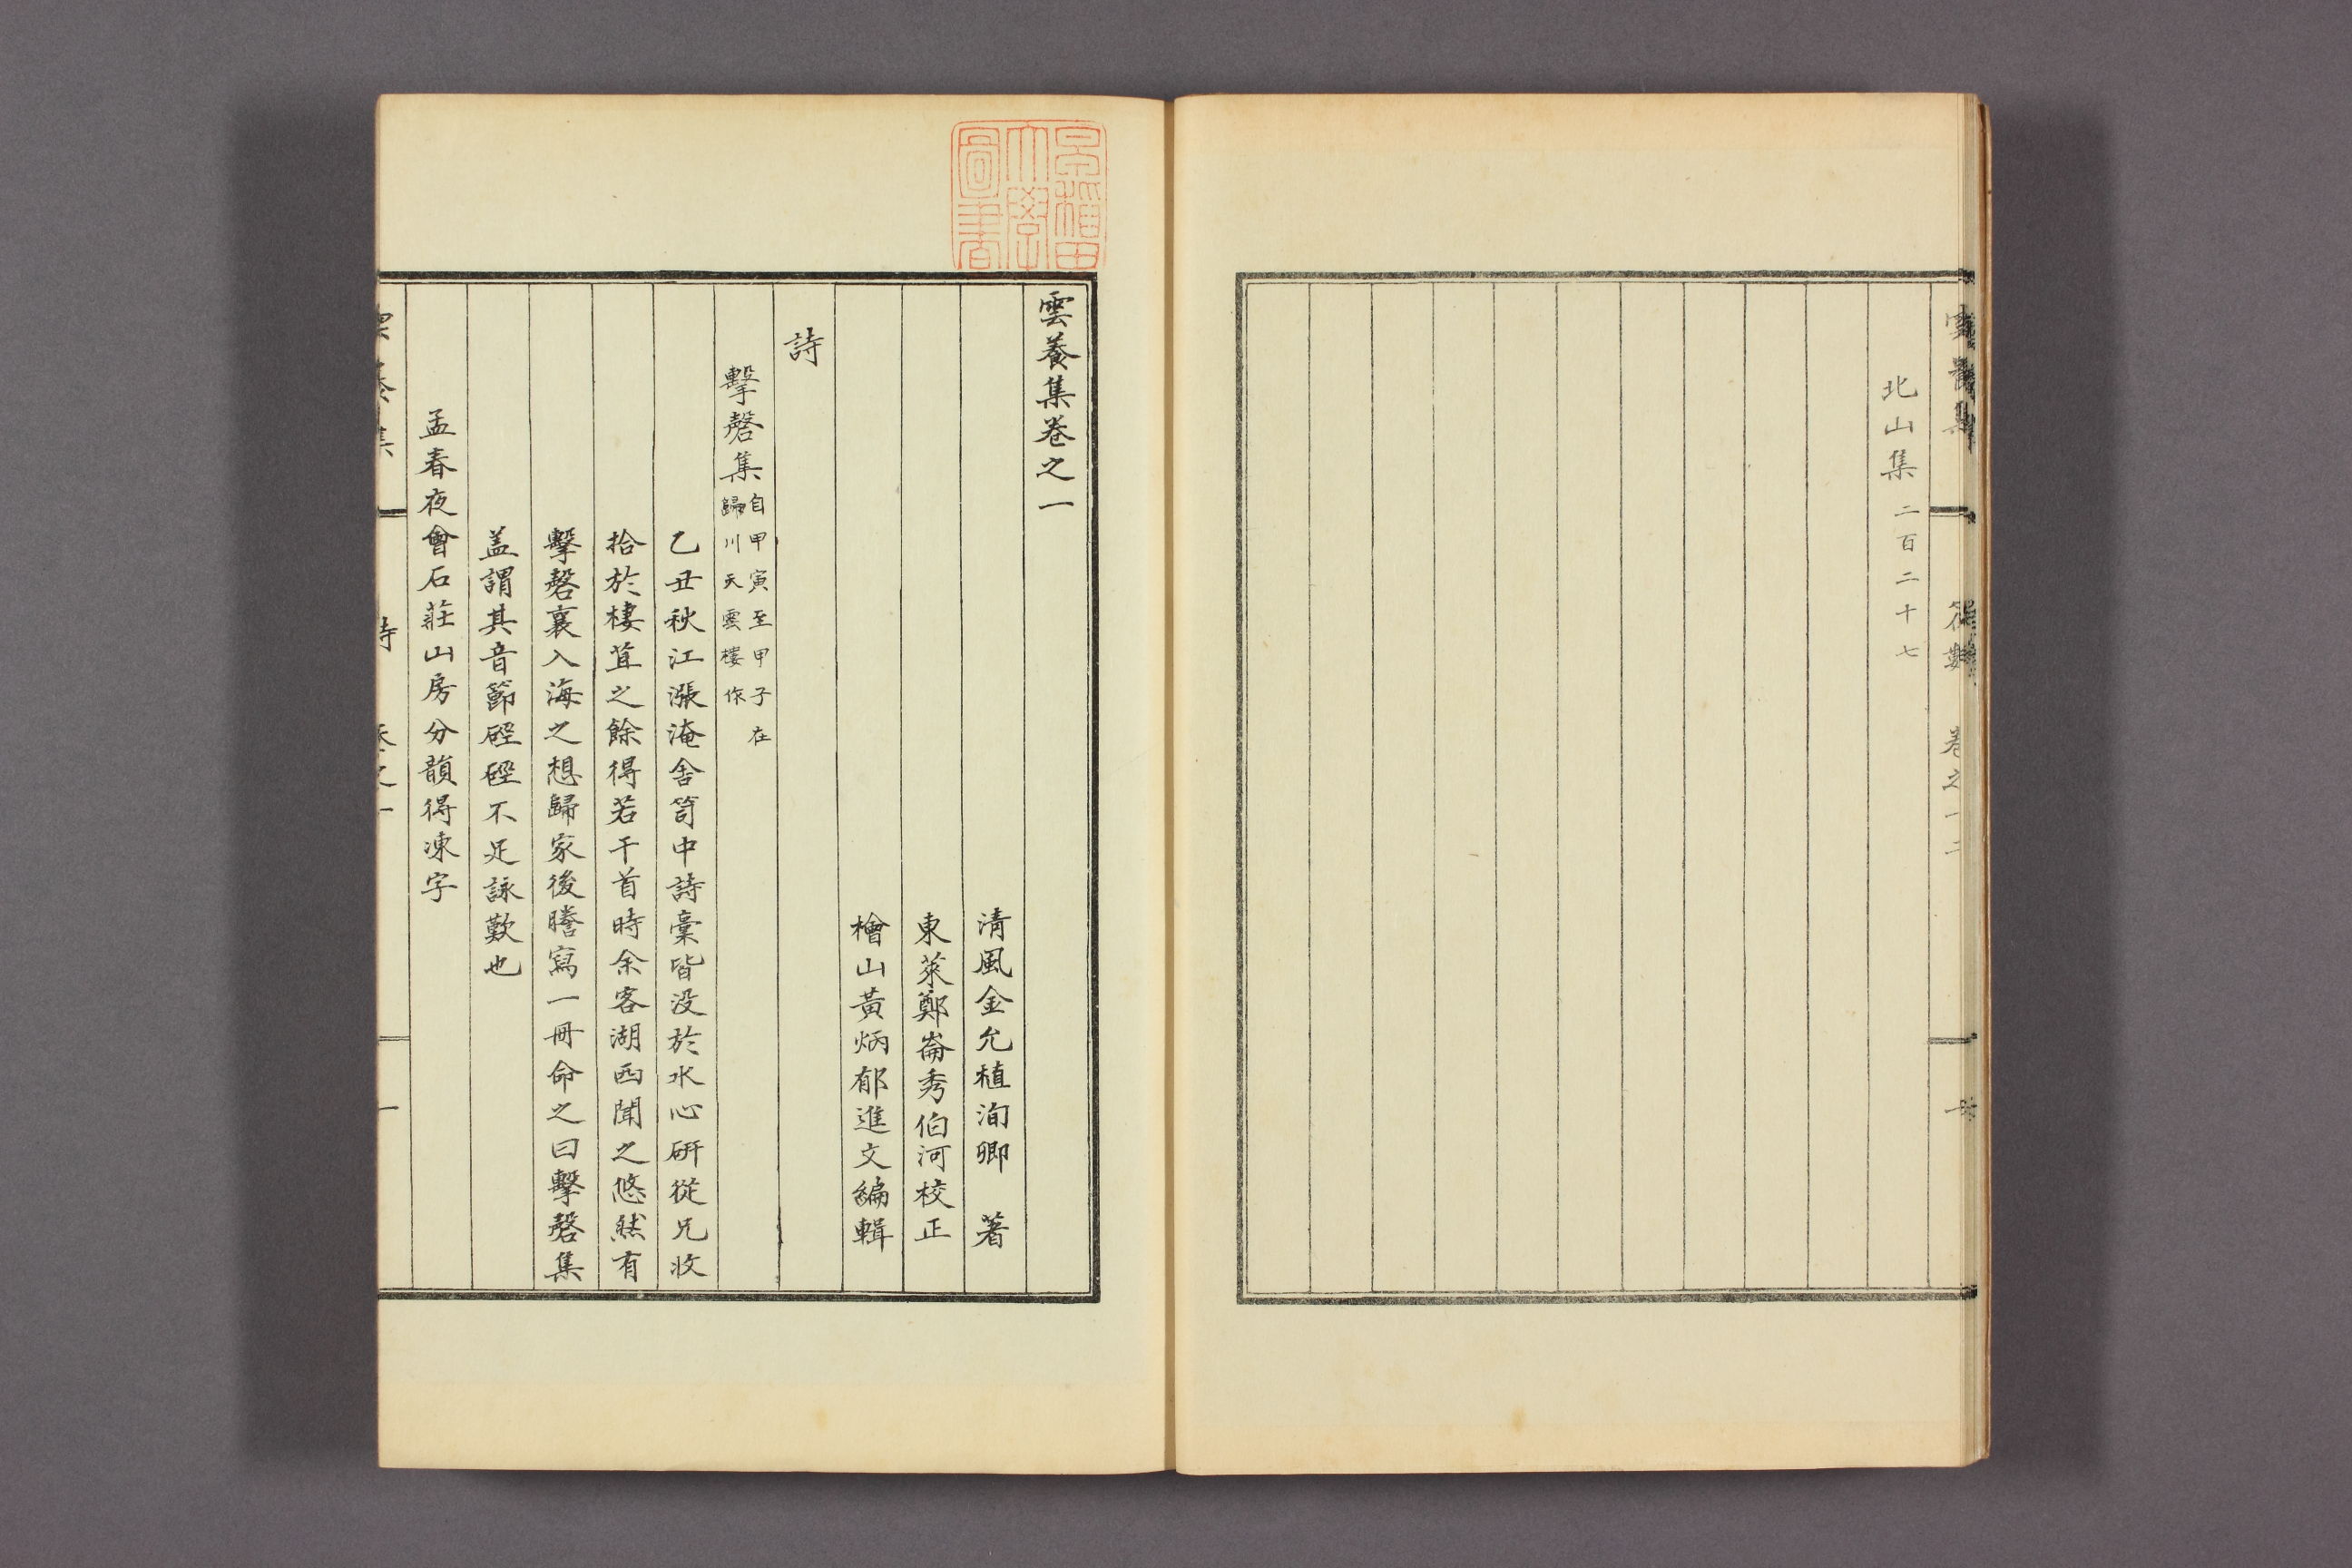 北山集 二百二十七
卷之十三
雲養集卷之一
清風金允植洵卿 著
東萊鄭崙秀伯河校正
檜山黃炳郁進文編輯
詩
擊磬集 自甲寅至甲子在
歸川天雲樓作
乙丑秋江漲淹舍笥中詩稾皆没於水心研從兄收
拾於棲苴之餘得若干首時余客湖西聞之悠然有
擊磬襄入海之想歸家後謄寫一冊命之曰擊磬集
盖謂其音節硜硜不足詠歎也
孟春夜會石莊山房分韻得凍字
早稻田大學圖書